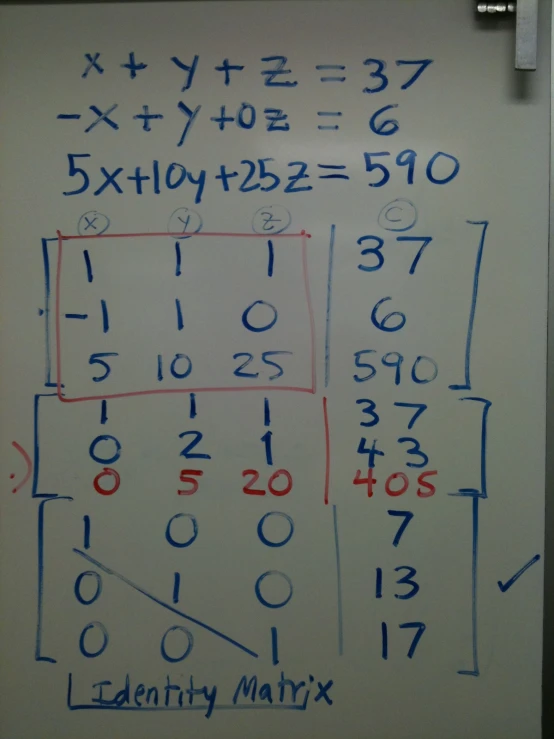 x + y + z = 37
-x + y + 0z = 6
5x+10y+25z = 590
x y z C
1 1 1 | 37
-1 1 0 6
5 10 25 590
1 1 1 | 37
0 2 1 43
0 5 20 405
1 0 0 | 7
0 1 0 13
0 0 1 17
Identity Matrix